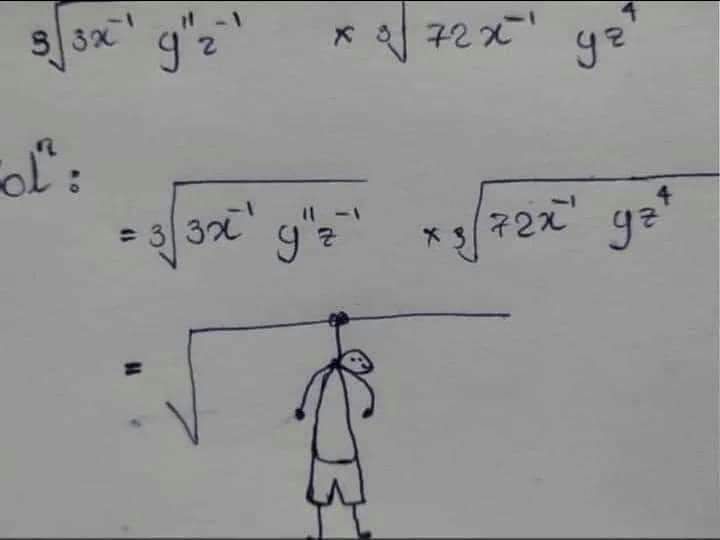 ∛3x⁻¹ y¹¹z⁻¹ × ∛72x⁻¹ yz⁴
olⁿ:
= ∛3x⁻¹ y¹¹z⁻¹ × ∛72x⁻¹ yz⁴
= √